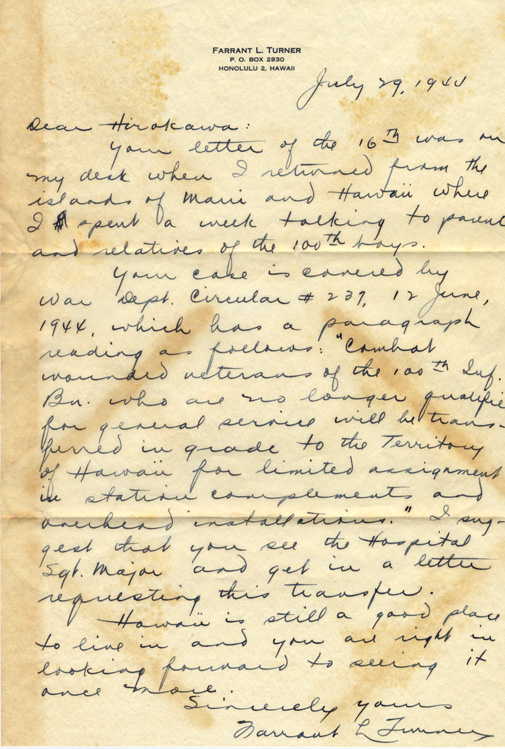 FARRANT L. TURNER
P. O. BOX 2930
HONOLULU 2, HAWAII
July 29, 1944
Dear Hirokawa:
Your letter of the 16th was on
my desk when I returned from the
islands of Maui and Hawaii where
I spent a week talking to parent
and relatives of the 100th boys.
Your case is covered by
War Dept. Circular # 239, 12 June,
1944, which has a paragraph
reading as follows: "Combat
wounded veterans of the 100th Inf.
Bn. who are no longer qualifie
for general service will be trans-
ferred in grade to the Territory
of Hawaii for limited assignment
in station complements and
overhead installations." I sug-
gest that you see the Hospital
Sgt. Major and get in a letter
requesting this transfer.
Hawaii is still a good place
to live in and you are right in
looking forward to seeing it
once more.
Sincerely yours
Farrant L Turner